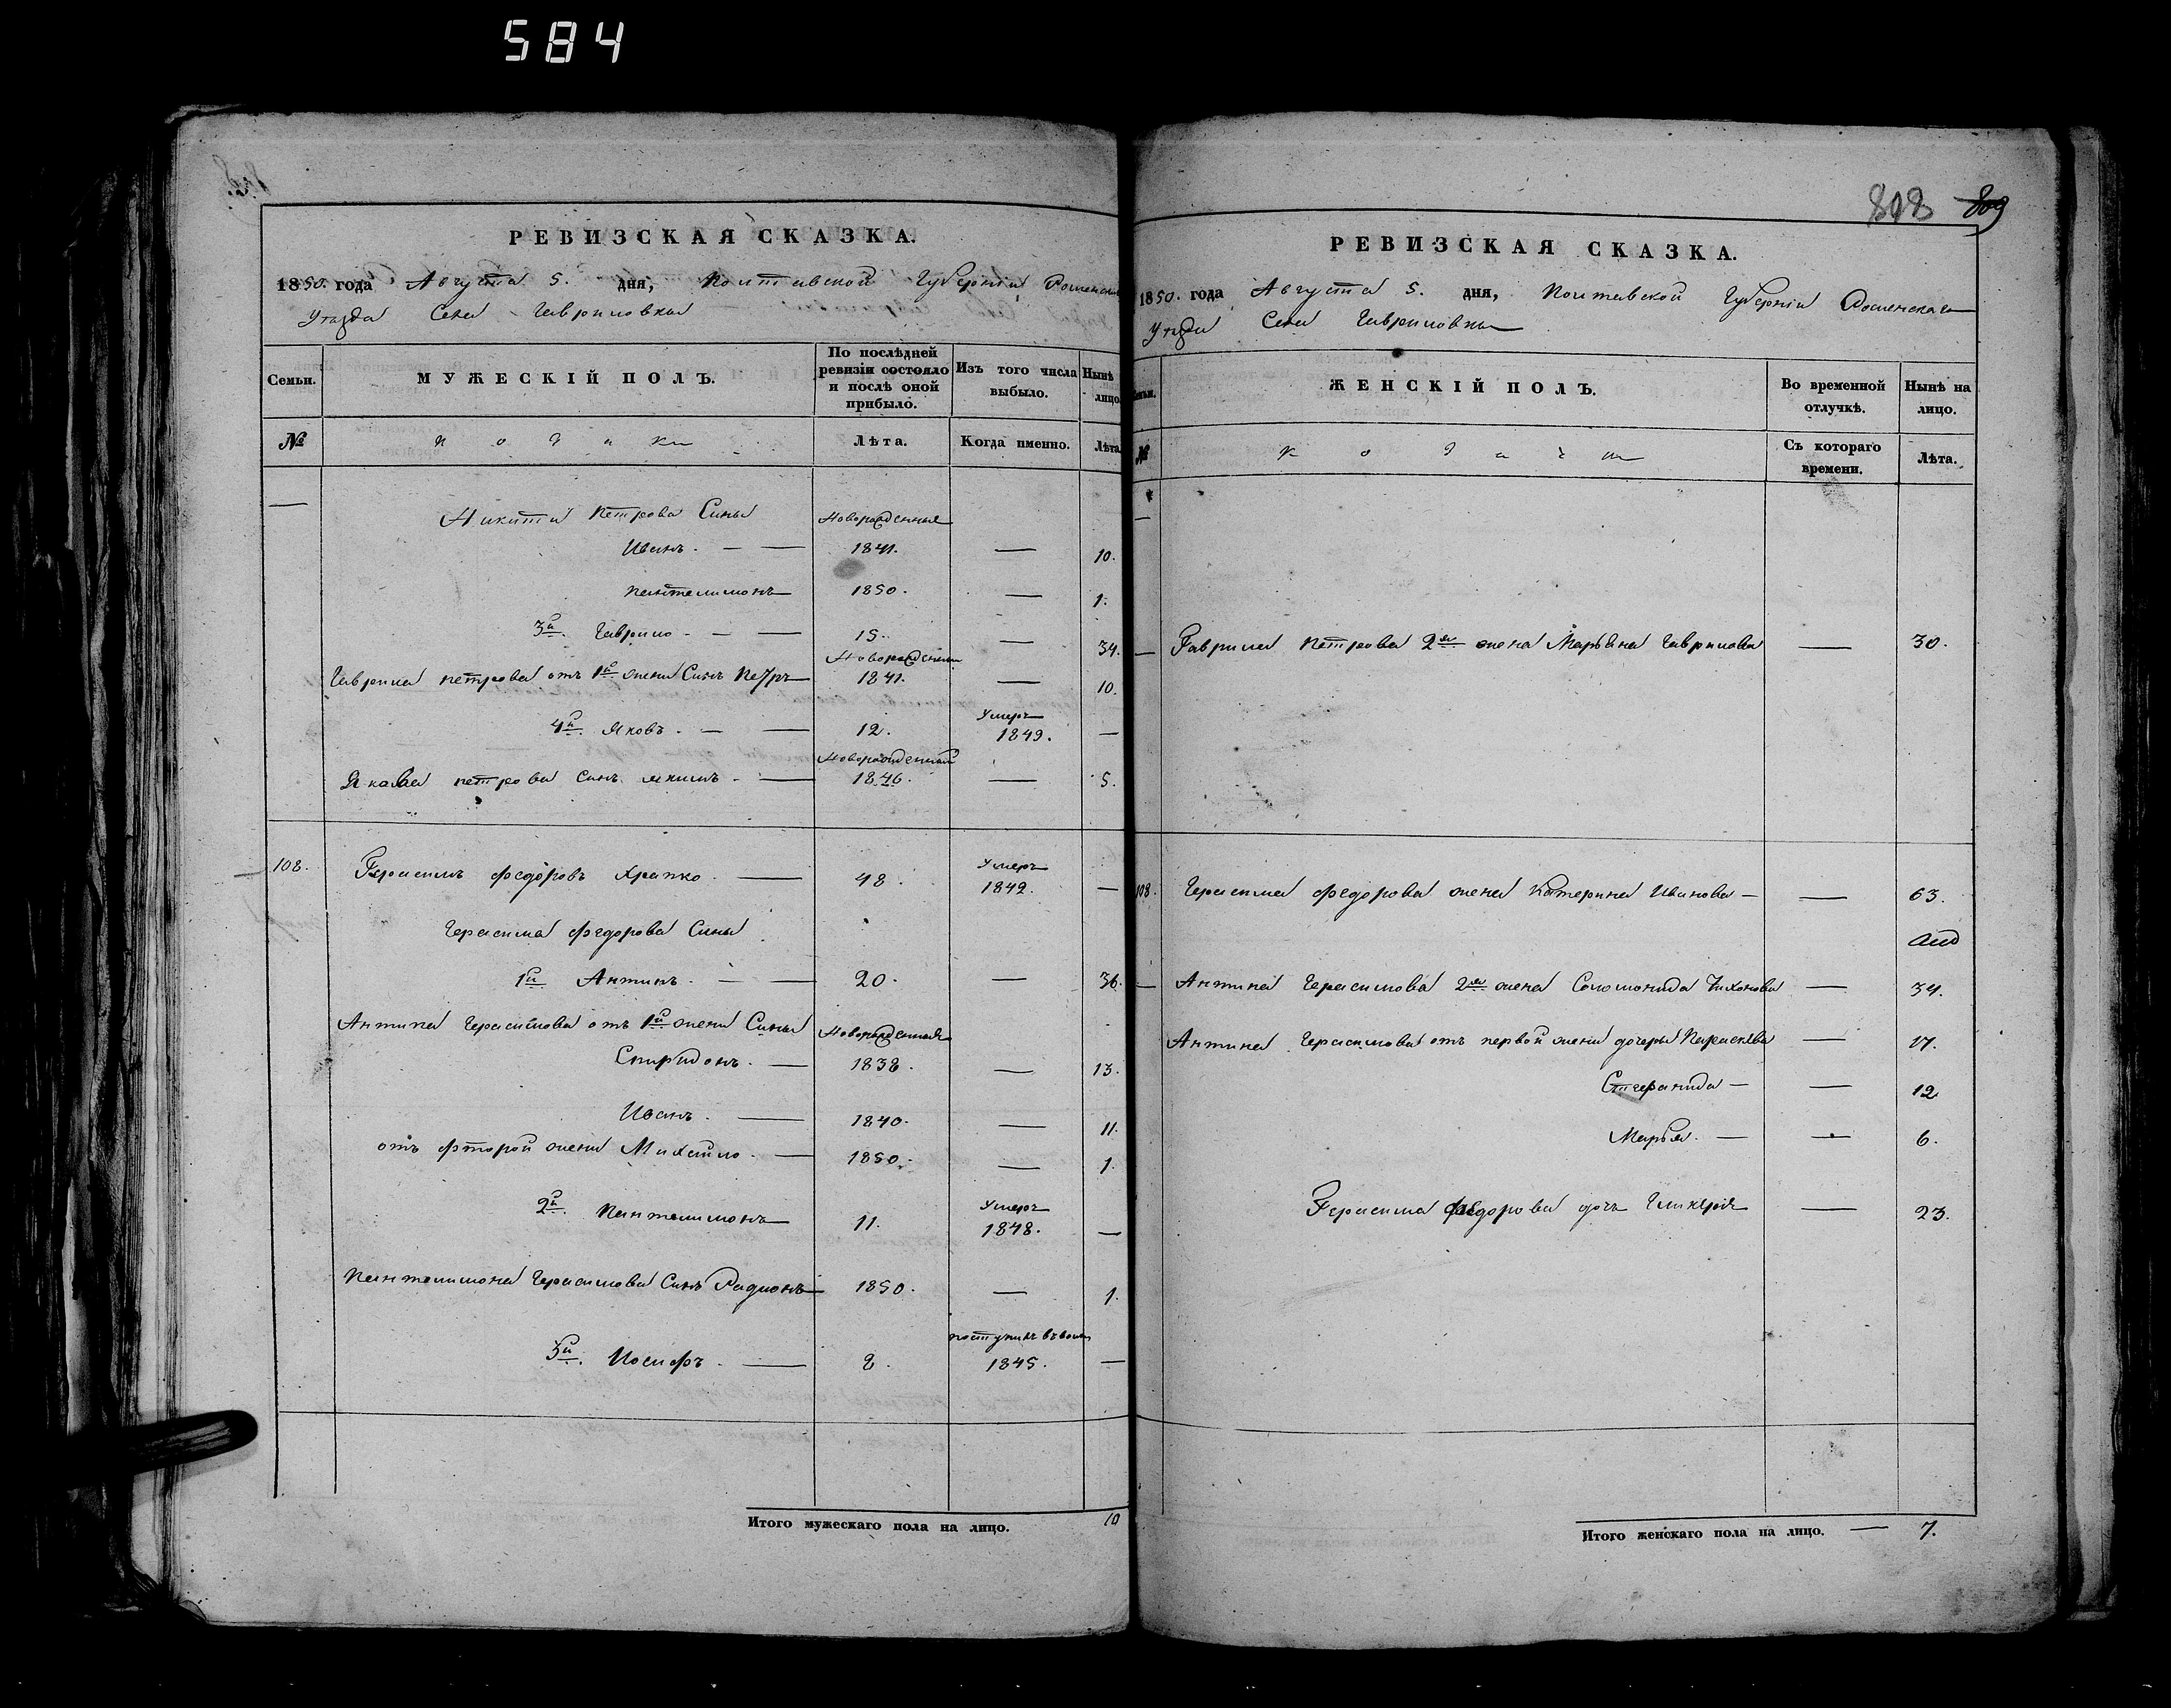 584
РЕВИЗСКАЯ СКАЗКА.
1850. года Августа 5. дня, Полтавской Губерніи Роменскаго
Уезда Села Гавриловки
Семьи.
МУЖЕСКІЙ ПОЛЪ.
По послѣдней ревизіи состояло и послѣ оной прибыло.
Изъ того числа выбыло.
Нынѣ лицо
№
Лѣта.
Когда именно.
Лѣта
— Никиты Петрова Сины Новорожденные
Иванъ. — — 1841. — 10.
Пантелимонъ — 1850. — 1.
3й. Гаврило — — 15. — 34.
Новорожденны
Гаврила Петрова отъ 1й жены Синъ Петръ — 1841. — 10.
Умеръ
4й. Яковъ. — — 12. 1849. —
Новорожденный
Якова Петрова Синъ Якимъ — 1846. — 5.
Умеръ
108. Герасимъ Федоровъ Храпко — 48. 1849. —
Герасима Федорова Сины
1й Антипъ. — — 20. — 36.
Антипа Герасимова отъ 1й жены Сины Новорожденныя
Спиридонъ. — 1838. — 13.
Иванъ. — 1840. — 11.
отъ фторой жены Михайло. — 1850. — 1.
Умеръ
2й. Пантелимонъ — 11. 1848. —
Пантелимона Герасимова Синъ Радионъ — 1850. — 1.
поступилъ
3й. Иосифъ. — 8. 1845. —
Итого мужескаго пола на лицо. 10
809
РЕВИЗСКАЯ СКАЗКА.
1850. года Августа 5. дня, Полтавской Губерніи Роменскаго
Уезда Села Гавриловки
ЖЕНСКІЙ ПОЛЪ.
Во временной отлучкѣ.
Нынѣ на лицо.
№
Съ котораго времени.
Лѣта.
—
— Гаврила Петрова 2я жена Марьяна Гаврилова — 30.
108. Герасима Федорова жена Катерина Иванова — — 63.
— Антипа Герасимова 2я жена Соломонида Тихонова — 34.
Антипа Герасимова отъ первой жены дочеры Параскева — 17.
Степанида — — 12
Марья. — — 6.
Герасима Федорова дочъ Гликерія — 23.
Итого женскаго пола на лицо. — 7.